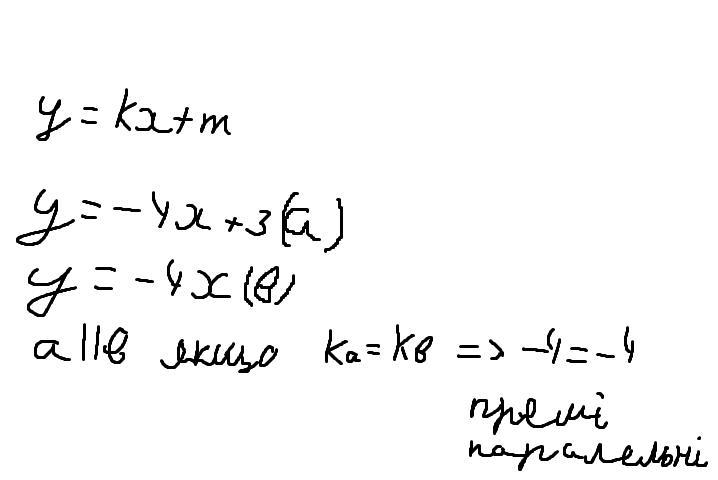 y = kx+m
y = -4x + 3 (a)
y = -4x (в)
a||в якщо kа = kв => -4 = -4
премі
паралельні